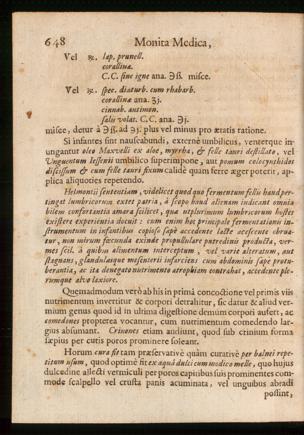 648 Monita Medica,
Vel ℞. lap. prunell.
corallinæ.
C. C. sine igne ana. ℈ß. misce.
Vel ℞. spec. diaturb. cum rhabarb.
corallinæ ana. ʒj.
cinnab. antimon.
salis volat. C. C. ana. ℈j.
misce, detur à ℈ß. ad ʒj. plus vel minus pro ætatis ratione.
Si infantes sint nauseabundi, externè umbilicus, venterque in-
ungantur oleo Maxvelli ex aloe, myrrha, & felle tauri destillato, vel
Unguentum Iessenii umbilico superimpone, aut pomum colocynthidos
discissum & cum felle tauri frixum calidè quam ferre æger poterit, ap-
plica aliquoties repetendo.
Helmontii sententiam, videlicet quod quo fermentum fellis haud per-
tinget lumbricorum extet patria, à scopo haud alienam indicant omnia
bilem confortantia amara scilicet, qua utplurimùm lumbricorum hostes
existere experientia docuit: cum enim hæc principale fermentationis in-
strumentum in infantibus copioso sæpe accedente lacte acescente obrua-
tur, non mirum fœcunda exinde propullulare putredinis producta, ver-
mes scil. à quibus alimentum interceptum, vel variè alteratum, aut
stagnans, glandulasque mesenterii infarciens cum abdominis sæpe protu-
berantia, ac ita denegato nutrimento atrophiam contrahat, accedente ple-
rumque alvo laxiore.
Quemadmodum verò ab his in primâ concoctione vel primis viis
nutrimentum invertitur & corpori detrahitur, sic datur & aliud ver-
mium genus quod id in ultima digestione demùm corpori aufert, ac
comedones propterea vocantur, cum nutrimentum comedendo lar-
gius absumant. Crinones etiam audiunt, quod sub crinium forma
sæpius per cutis poros prominere soleant.
Horum cura fit tam præservativè quàm curativè per balnei repe-
titum usum, quod optimè fit ex aquâ dulci cum modico melle, quo hujus
dulcedine allecti vermiculi per poros capitibus suis prominentes com-
mode scalpello vel crusta panis acuminata, vel unguibus abradi
possint,